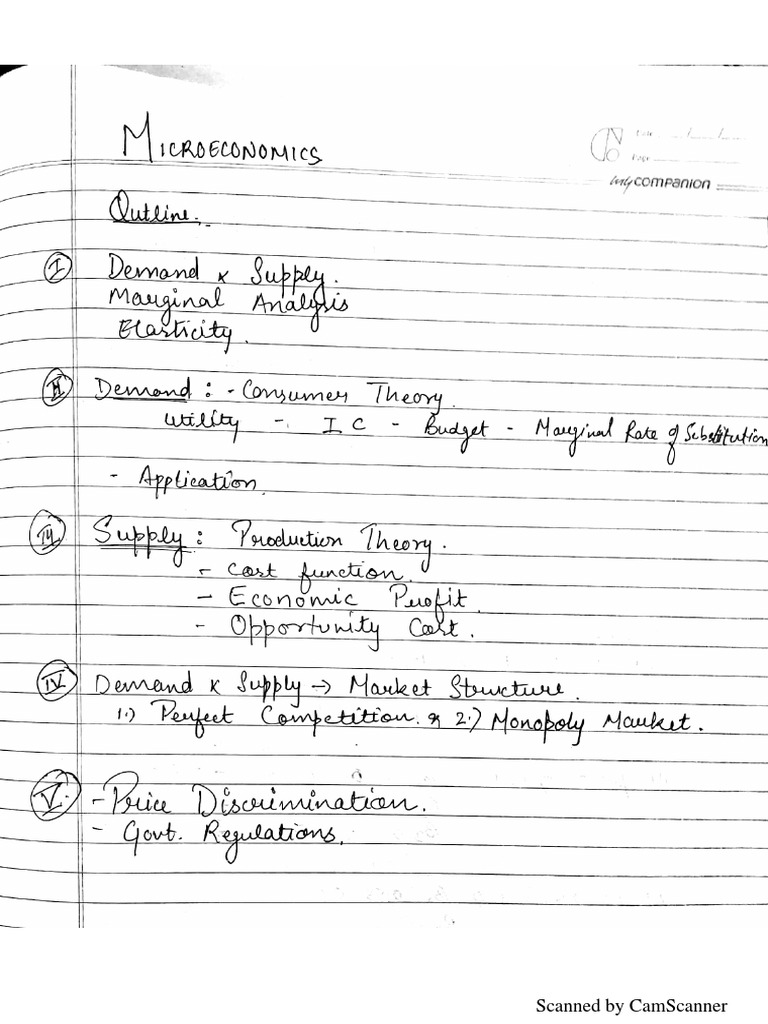 MICROECONOMICS
my companion
Outline.
I Demand & Supply.
Marginal Analysis
Elasticity.
II Demand : - Consumer Theory.
Utility - I C - Budget - Marginal Rate of Substitution
- Application.
III Supply : Production Theory.
- Cost function.
- Economic Profit.
- Opportunity Cost.
IV Demand & Supply → Market Structure.
1.) Perfect Competition. & 2.) Monopoly Market.
V. - Price Discrimination.
- Govt. Regulations.
Scanned by CamScanner